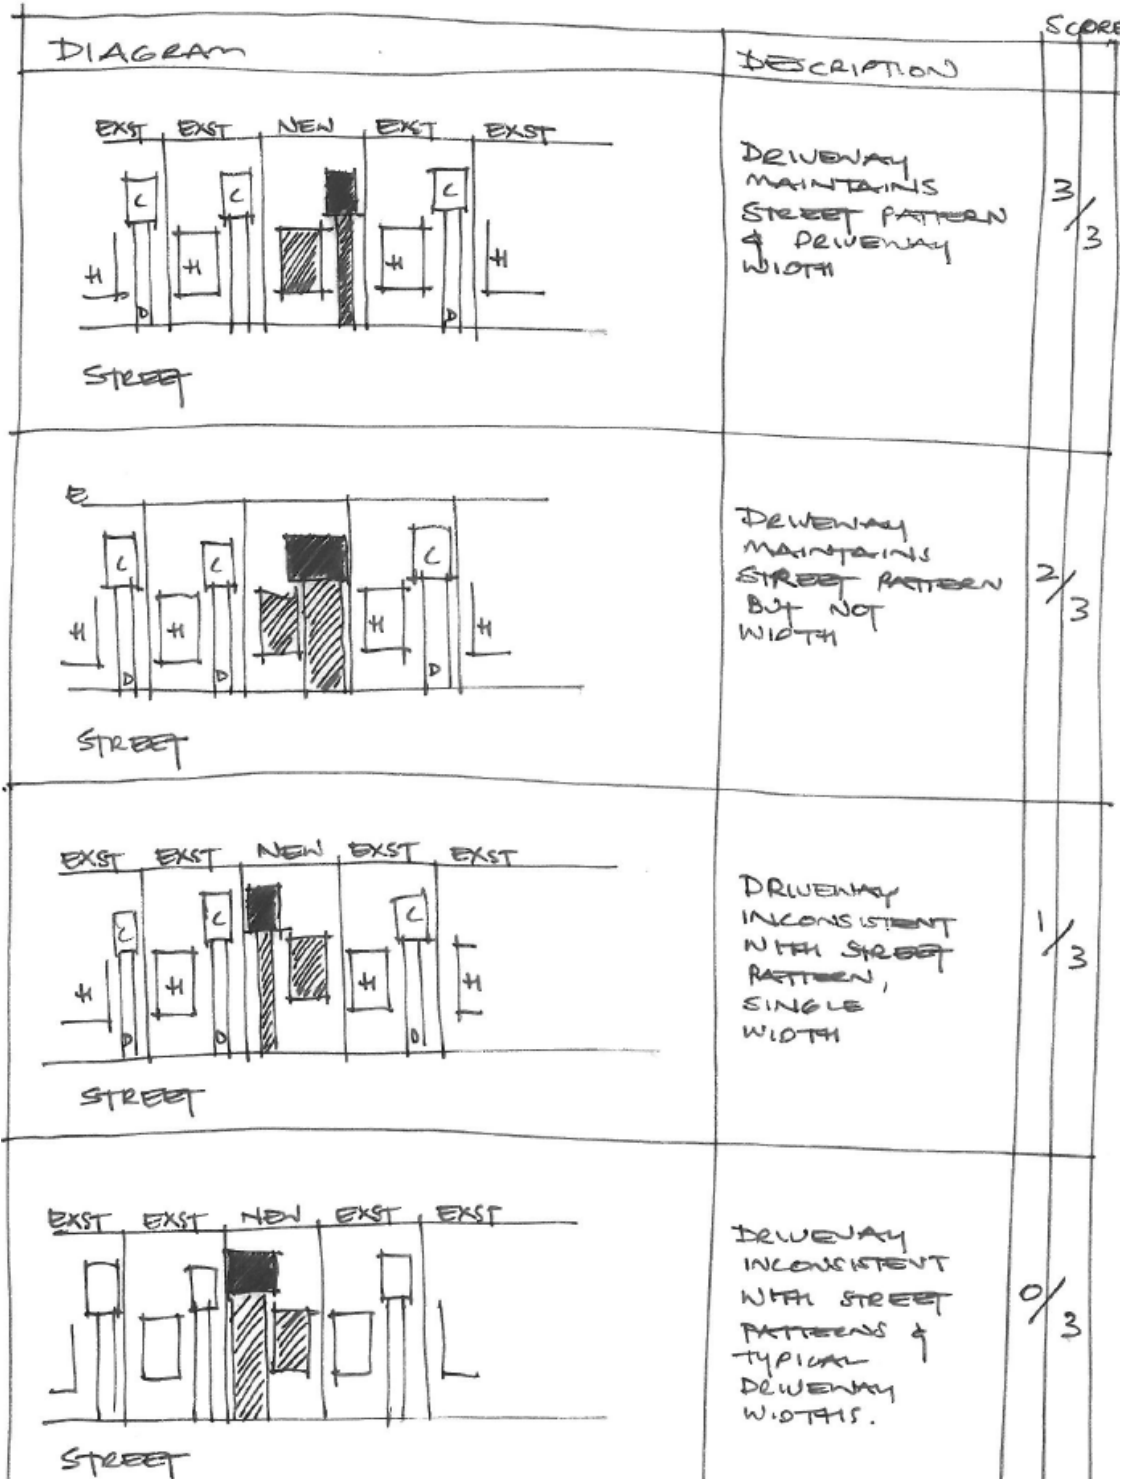 DIAGRAM
DESCRIPTION
SCORE
EXST EXST NEW EXST EXST
C C C
H H H H
D D
STREET
DRIVEWAY
MAINTAINS
STREET PATTERN
& DRIVEWAY
WIDTH
3/3
E
C C C
H H H H
D D D
STREET
DRIVEWAY
MAINTAINS
STREET PATTERN
BUT NOT
WIDTH
2/3
EXST EXST NEW EXST EXST
C C C
H H H H
D D D
STREET
DRIVEWAY
INCONSISTENT
WITH STREET
PATTERN,
SINGLE
WIDTH
1/3
EXST EXST NEW EXST EXST
STREET
DRIVEWAY
INCONSISTENT
WITH STREET
PATTERNS &
TYPICAL
DRIVEWAY
WIDTHS.
0/3